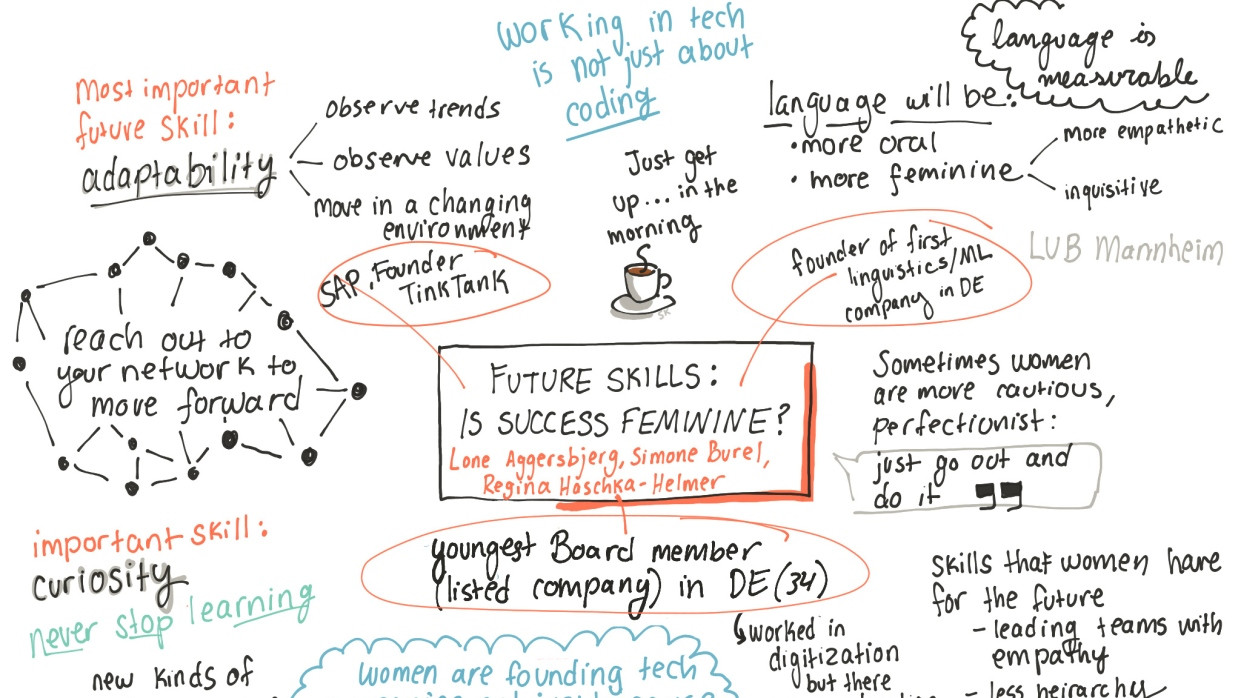 working in tech
is not just about
coding
language is
measurable
most important
future skill:
adaptability
observe trends
observe values
move in a changing
environment
Just get
up... in the
morning
SK
language will be:
• more oral
• more feminine
more empathetic
inquisitive
LUB Mannheim
SAP, Founder
TinkTank
founder of first
linguistics/ML
company in DE
reach out to
your network to
move forward
FUTURE SKILLS:
IS SUCCESS FEMININE?
Lone Aggersbjerg, Simone Burel,
Regina Höschka-Helmer
Sometimes women
are more cautious,
perfectionist:
just go out and
do it
important skill:
curiosity
never stop learning
new kinds of
youngest Board member
(listed company) in DE (34)
worked in
digitization
but there
women are founding tech
skills that women have
for the future
- leading teams with
empathy
- less heirarchy